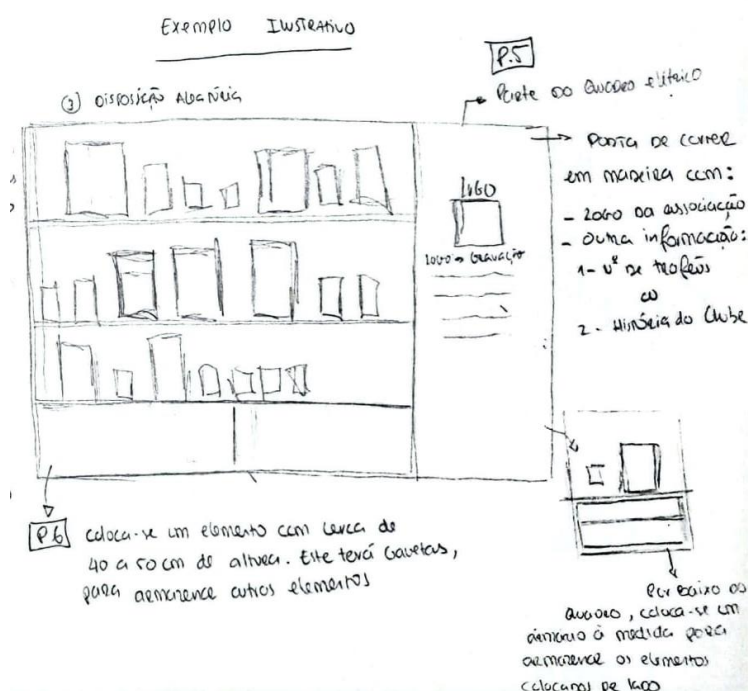 Exemplo Ilustrativo
P.5
Parte do Quadro elétrico
③ Disposição Aleatória
Porta de correr
em madeira com:
- Logo da associação
- Outra informação:
1- Nº de troféus
ou
2 - História do Clube
LOGO
Logo → Gravação
P.6
coloca-se um elemento com cerca de
40 a 50 cm de altura. Este terá Gavetas,
para armazenar outros elementos
Por baixo do
Quadro, coloca-se um
armário à medida para
armazenar os elementos
colocados de lado